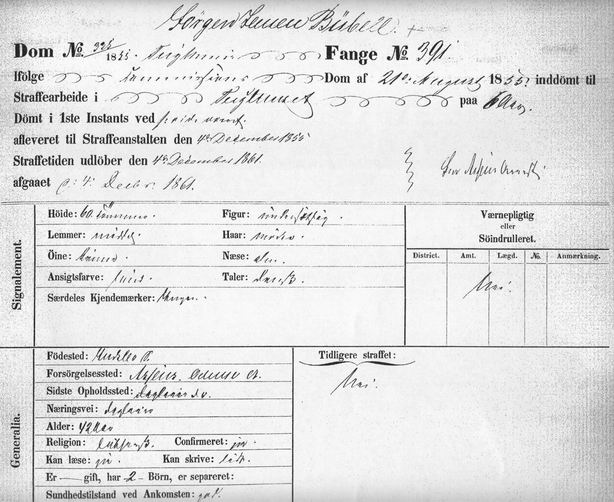 Jörgen Jensen Bübell.
Dom № 1855. Fange № 391
Ifölge Dom af 21de August 1855. inddömt til
Straffearbeide i Tugthuset paa 6 Aar.
Dömt i 1ste Instants ved
afleveret til Straffeanstalten den 4de December 1855
Straffetiden udlöber den 4de December 1861.
afgaaet d: 4: Decbr. 1861.
Signalement.
Höide: 60 Tommer. Figur: undersætsig.
Lemmer: middel Haar: mörke.
Öine: Næse: alm.
Ansigtsfarve: Taler: dansk.
Særdeles Kjendemærker: Ingen.
Værnepligtig
eller
Söindrulleret.
District. Amt. Lægd. №. Anmærkning.
Nei.
Generalia.
Födested:
Forsörgelsessted: Assens, Odense A.
Sidste Opholdssted:
Næringsvei: Daglejer
Alder: 42 Aar
Religion: luthersk. Confirmeret: ja.
Kan læse: ja. Kan skrive: lidt.
Er — gift, har 2 Börn, er separeret:
Sundhedstilstand ved Ankomsten: god.
Tidligere straffet:
Nei.